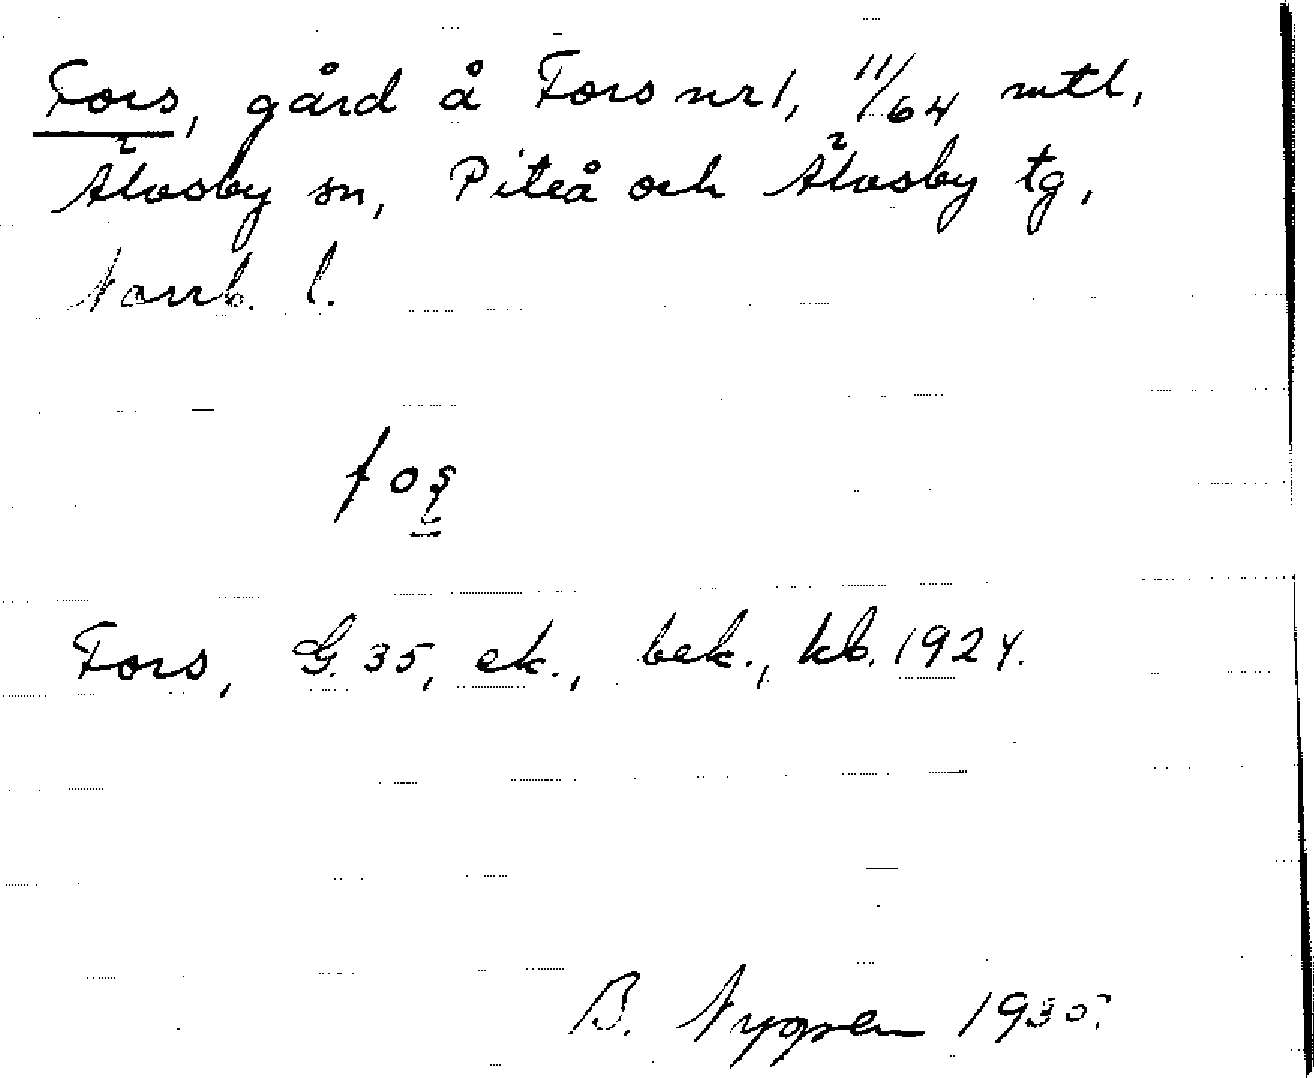 Fors, gård å Fors nr 1, 11/64 mtl,
Älvsby sn, Piteå och Älvsby tg,
Norrb. l.
foş
Fors, G. 35, ek., bek., kb. 1924.
B. Nygren 1935.